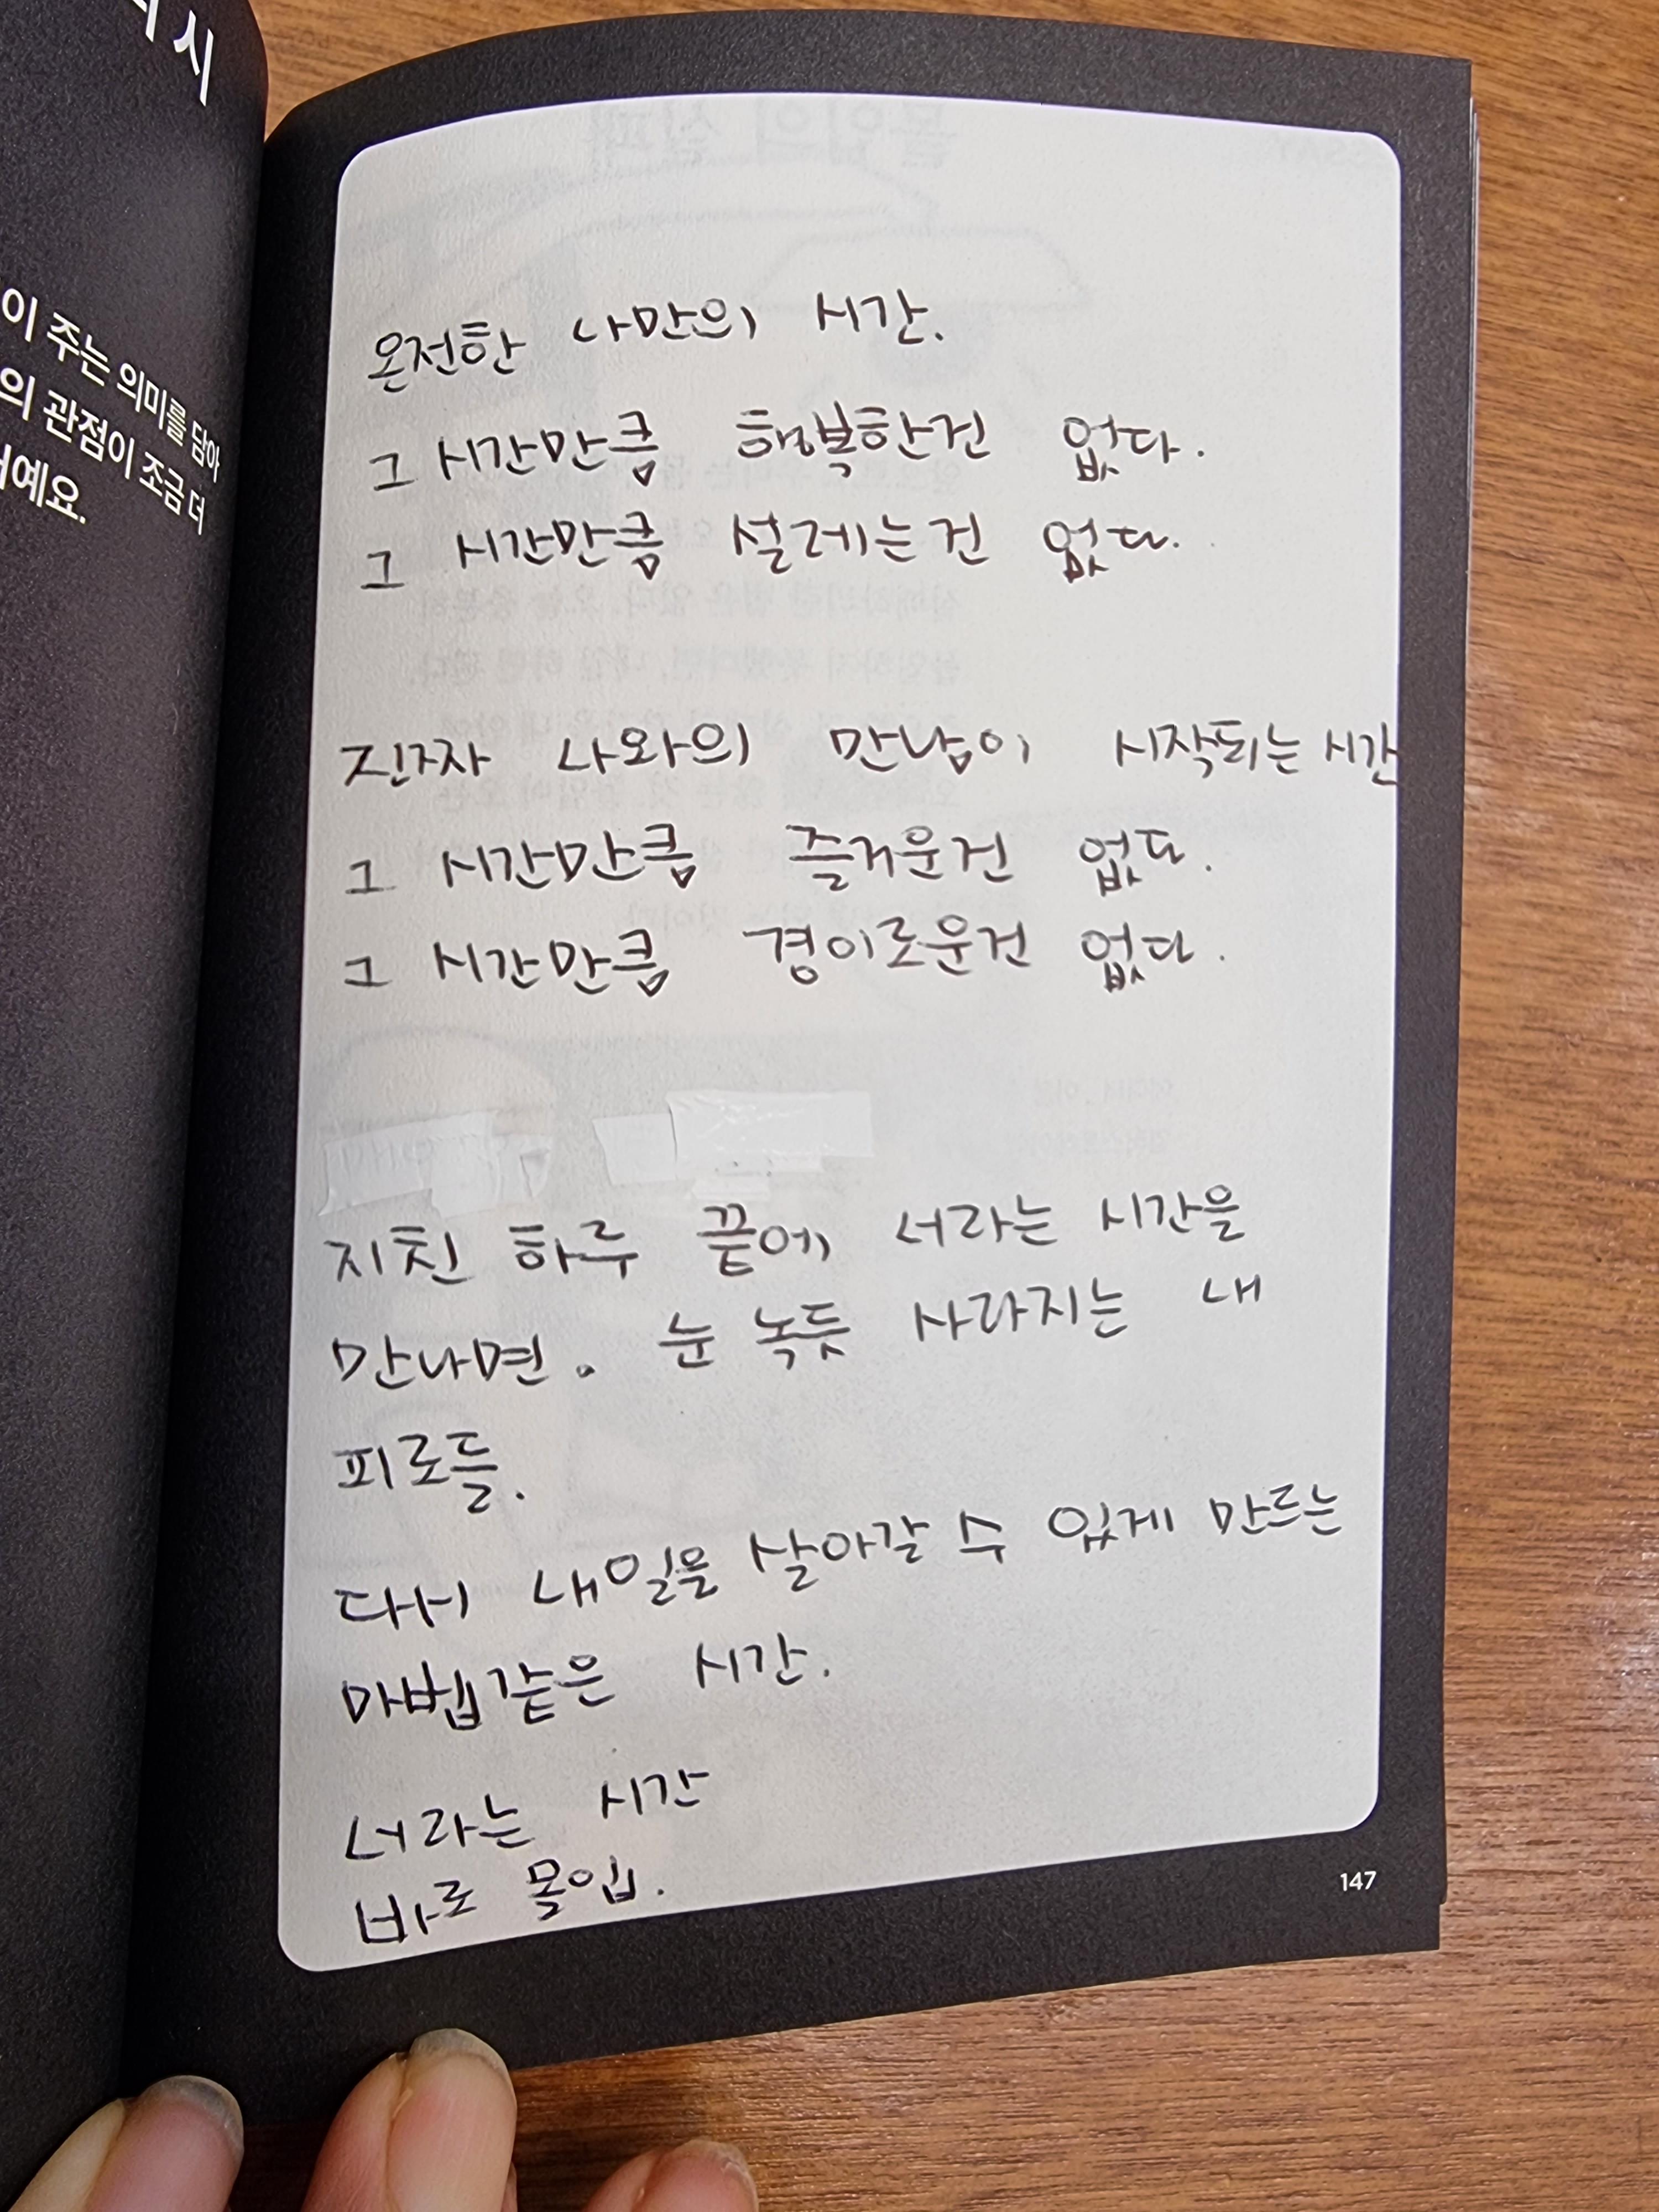 시
이 주는 의미를 담아
의 관점이 조금 더
예요.
온전한 나만의 시간.
그 시간만큼 행복한건 없다.
그 시간만큼 설레는건 없다.
진자자 나와의 만남이 시작되는 시간
그 시간만큼 즐거운건 없다.
그 시간만큼 경이로운건 없다.
지친 하루 끝에 너라는 시간을
만나면. 눈 녹듯 사라지는 내
피로들.
다시 내일을 살아갈 수 있게 만드는
마법같은 시간.
너라는 시간
바로 몰입.
147